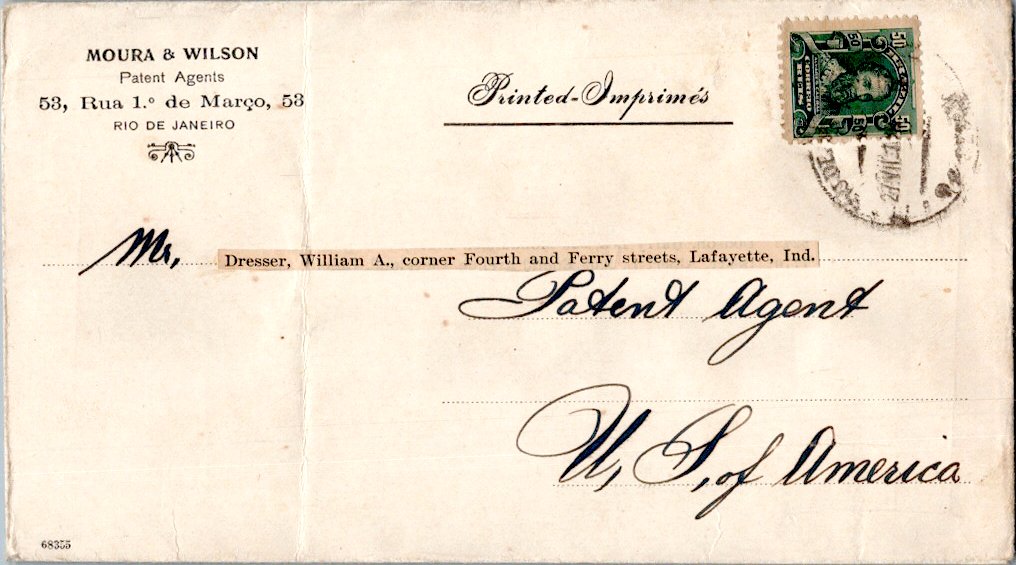 MOURA & WILSON
Patent Agents
53, Rua 1.º de Março, 53
RIO DE JANEIRO
Printed-Imprimés
50 50
CORREIO
RÉIS
50 50
Mr, Dresser, William A., corner Fourth and Ferry streets, Lafayette, Ind.
Patent Agent
U, S, of America
68355